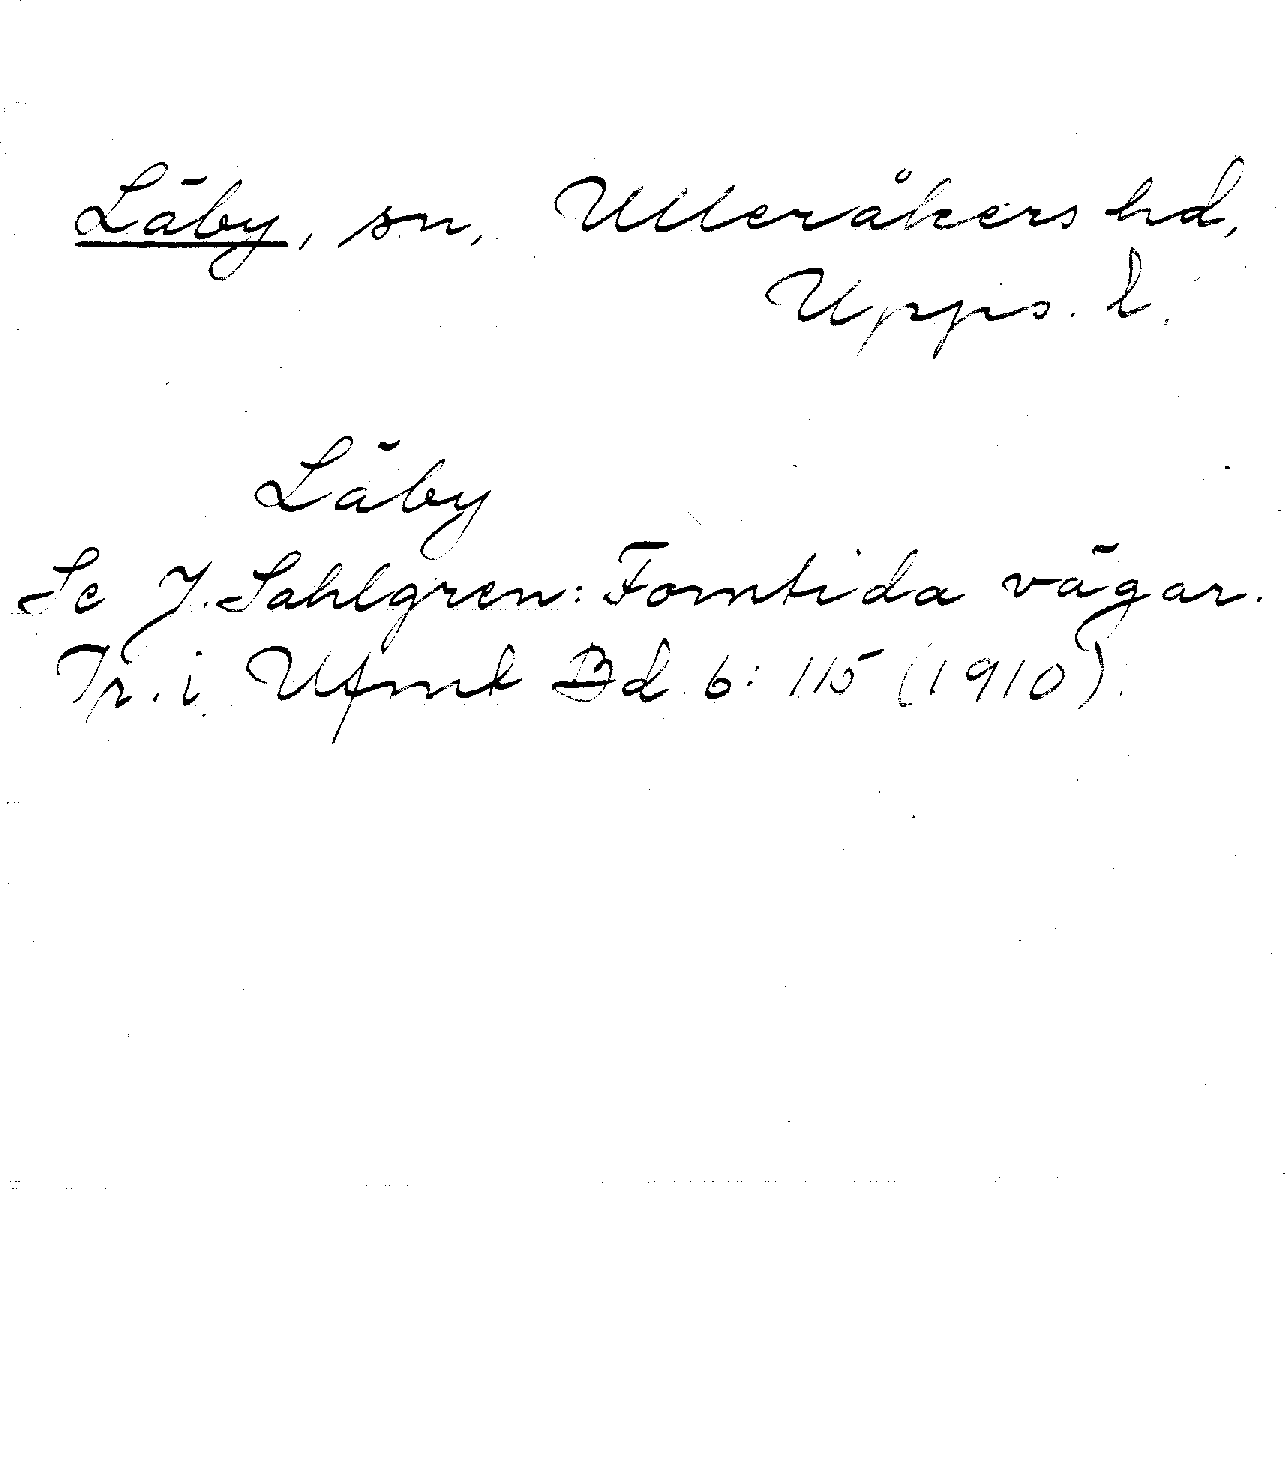 Läby, sn, Ulleråkers hd,
Upps. l.
Läby
Se J. Sahlgren: Forntida vägar.
Tr. i Ufmt Bd 6: 115 (1910).